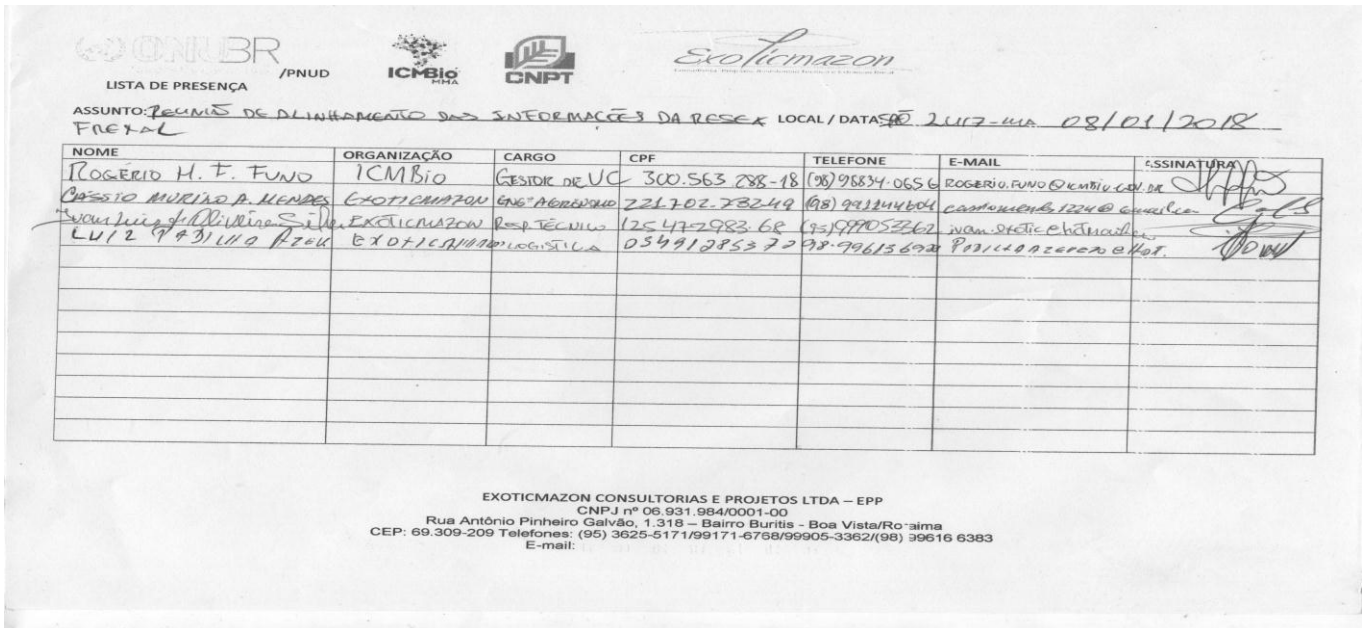 ONU BR
/PNUD
ICMBio
MMA
CNPT
Exoticmazon
LISTA DE PRESENÇA
ASSUNTO: REUNIÃO DE ALINHAMENTO DAS INFORMAÇÕES DA RESEX LOCAL / DATA SÃO LUIZ-MA 08/01/2018
FREXAL
NOME ORGANIZAÇÃO CARGO CPF TELEFONE E-MAIL ASSINATURA
ROGÉRIO H. F. FUNO ICMBio GESTOR DE UC 300.563.288-18 (98)98834-0656 ROGERIO.FUNO@ICMBIO.GOV.BR
CÁSSIO MURILO A. MENDES EXOTICMAZON ENGº AGRÔNOMO 221.702.732-49 (98) 991244604
Ivan Luiz de Oliveira Silva EXOTICMAZON RESP. TÉCNICO 125472983-68 (95)999053362
LUIZ EXOTICMAZON LOGÍSTICA 05491285372 98-99613
EXOTICMAZON CONSULTORIAS E PROJETOS LTDA – EPP
CNPJ nº 06.931.984/0001-00
Rua Antônio Pinheiro Galvão, 1.318 – Bairro Buritis - Boa Vista/Roraima
CEP: 69.309-209 Telefones: (95) 3625-5171/99171-6768/99905-3362/(98) 99616 6383
E-mail: